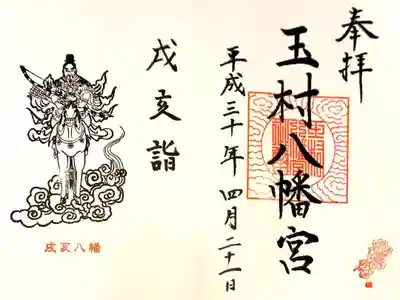 奉拝
玉村八幡宮
平成三十年 四月二十一日
戌亥詣
戌亥八幡